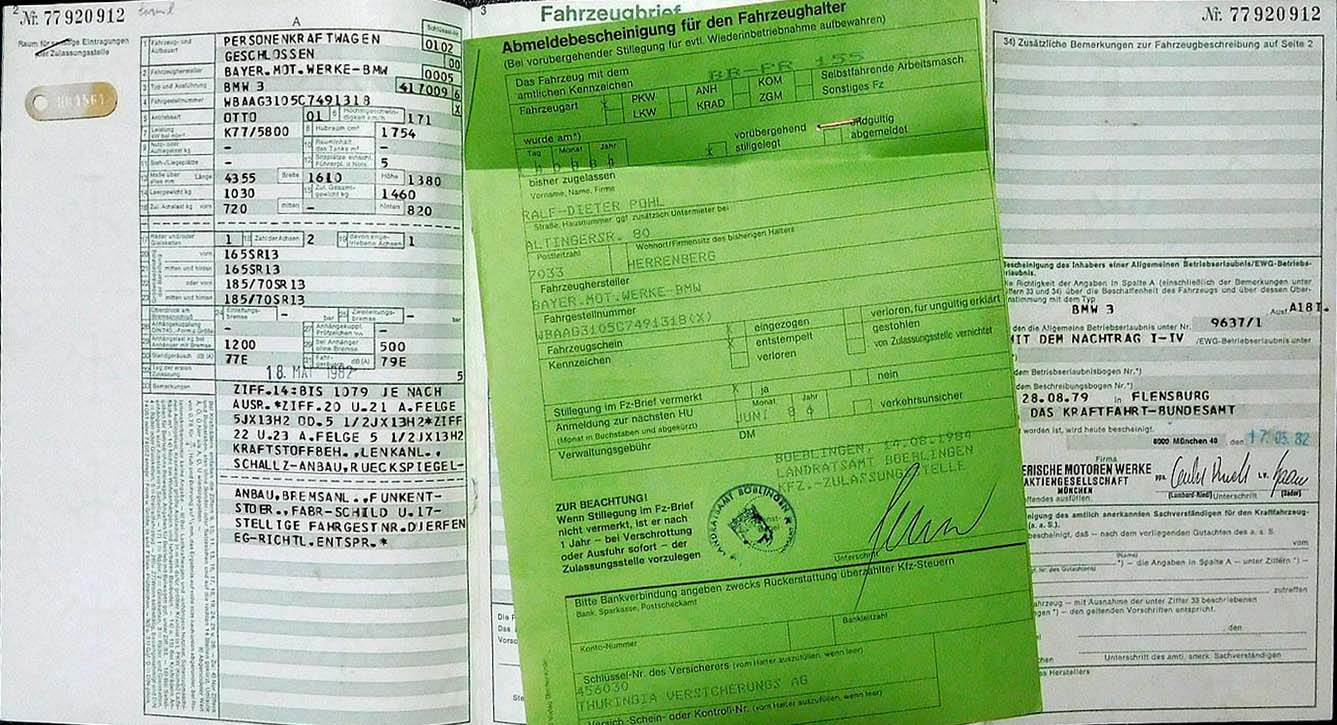 2
Nr. 77920912
Raum für sonstige Eintragungen
der Zulassungsstelle
A
Schlüssel-Nr.
1 Fahrzeug- und Aufbauart PERSONENKRAFTWAGEN 01 02
GESCHLOSSEN 00
2 Fahrzeughersteller BAYER.MOT.WERKE-BMW 0005
3 Typ und Ausführung BMW 3 417009 6
4 Fahrgestellnummer WBAAG3105C7491318 X
5 Antriebsart OTTO 01 6 Höchstgeschwindigkeit km/h 171
7 Leistung K77/5800 8 Hubraum cm³ 1754
9 Nutz- oder Aufliegelast kg - 10 Rauminhalt des Tanks m³ -
11 Steh-/Liegeplätze - 12 Sitzplätze einschl. Führerpl. u. Nots. 5
13 Maße über alles mm Länge 4355 Breite 1610 Höhe 1380
14 Leergewicht kg 1030 15 Zul. Gesamtgewicht kg 1460
16 Zul. Achslast kg vorn 720 mitten - hinten 820
17 Räder und/oder Gleisketten 1 18 Zahl der Achsen 2 19 davon angetriebene Achsen 1
20 vorn 165SR13
21 mitten und hinten 165SR13
22 oder vorn 185/70SR13
23 mitten und hinten 185/70SR13
Überdruck am Bremsanschluß 24 Einleitungsbremse - bar 25 Zweileitungsbremse - bar
26 Anhängerkupplung DIN 740.. Form u. Größe - 27 Anhängerkuppl. Prüfzeichen -
28 Anhängelast kg bei Anhänger mit Bremse 1200 29 bei Anhänger ohne Bremse 500
30 Standgeräusch dB (A) 77E 31 Fahrgeräusch dB (A) 79E
32 Tag der ersten Zulassung 18. MAI 1982 5
33 Bemerkungen ZIFF.14:BIS 1079 JE NACH
AUSR.*ZIFF.20 U.21 A.FELGE
5JX13H2 OD.5 1/2JX13H2*ZIFF
22 U.23 A.FELGE 5 1/2JX13H2
KRAFTSTOFFBEH.,LENKANL.,
SCHALLZ-ANBAU,RUECKSPIEGEL-
ANBAU,BREMSANL.,FUNKENT-
STOER.,FABR-SCHILD U.17-
STELLIGE FAHRGESTNR.DUERFEN
EG-RICHTL.ENTSPR.*
3
Fahrzeugbrief
Abmeldebescheinigung für den Fahrzeughalter
(Bei vorübergehender Stillegung für evtl. Wiederinbetriebnahme aufbewahren)
Das Fahrzeug mit dem
amtlichen Kennzeichen BB-PR 155
Fahrzeugart X PKW ANH KOM Selbstfahrende Arbeitsmasch.
LKW KRAD ZGM Sonstiges Fz
wurde am*)
Tag Monat Jahr X vorübergehend stillgelegt endgültig abgemeldet
bisher zugelassen
Vorname, Name, Firma
RALF-DIETER POHL
Straße, Hausnummer ggf. zusätzlich Untermieter bei
ALTINGERSR. 80
Postleitzahl Wohnort/Firmensitz des bisherigen Halters
7033 HERRENBERG
Fahrzeughersteller
BAYER.MOT.WERKE-BMW
Fahrgestellnummer
WBAAG3105C7491318(X)
Fahrzeugschein X eingezogen verloren, für ungültig erklärt
Kennzeichen X entstempelt gestohlen
verloren von Zulassungsstelle vernichtet
Stillegung im Fz-Brief vermerkt X ja nein
Anmeldung zur nächsten HU Monat Jahr
(Monat in Buchstaben und abgekürzt) JUNI 84 verkehrsunsicher
Verwaltungsgebühr DM
BOEBLINGEN, 14.08.1984
LANDRATSAMT BOEBLINGEN
KFZ.-ZULASSUNGSSTELLE
ZUR BEACHTUNG!
Wenn Stillegung im Fz-Brief
nicht vermerkt, ist er nach
1 Jahr – bei Verschrottung
oder Ausfuhr sofort – der
Zulassungsstelle vorzulegen
LANDRATSAMT BÖBLINGEN
Unterschrift
Bitte Bankverbindung angeben zwecks Rückerstattung überzahlter Kfz-Steuern
Bank, Sparkasse, Postscheckamt
Bankleitzahl
Konto-Nummer
Schlüssel-Nr. des Versicherers (vom Halter auszufüllen, wenn leer)
456030
THURINGIA VERSICHERUNGS AG
Versich.-Schein- oder Kontroll-Nr. (vom Halter auszufüllen, wenn leer)
4
Nr. 77920912
34) Zusätzliche Bemerkungen zur Fahrzeugbeschreibung auf Seite 2
Bescheinigung des Inhabers einer Allgemeinen Betriebserlaubnis/EWG-Betriebs-
erlaubnis.
Die Richtigkeit der Angaben in Spalte A (einschließlich der Bemerkungen unter
Ziffern 33 und 34) über die Beschaffenheit des Fahrzeugs und über dessen Über-
einstimmung mit dem Typ
BMW 3 , Ausf. A18I.
den die Allgemeine Betriebserlaubnis unter Nr. 9637/1
MIT DEM NACHTRAG I-IV /EWG-Betriebserlaubnis unter
dem Betriebserlaubnisbogen Nr.*)
dem Beschreibungsbogen Nr.*)
28.08.79 in FLENSBURG
DAS KRAFTFAHRT-BUNDESAMT
worden ist, wird heute bescheinigt.
8000 München 40 , den 17.05.82
Firma
BAYERISCHE MOTOREN WERKE
AKTIENGESELLSCHAFT
MÜNCHEN
ppa. i.V.
Unterschrift
des amtlich anerkannten Sachverständigen für den Kraftfahrzeug-
(a. a. S.).
bescheinigt, daß – nach dem vorliegenden Gutachten des a. a. S.
vom
(Name)
*) – die Angaben in Spalte A – unter Ziffern *) –
zutreffen
Fahrzeug – mit Ausnahme der unter Ziffer 33 beschriebenen
*) – den geltenden Vorschriften entspricht.
, den
Unterschrift des amtl. anerk. Sachverständigen
Herstellers